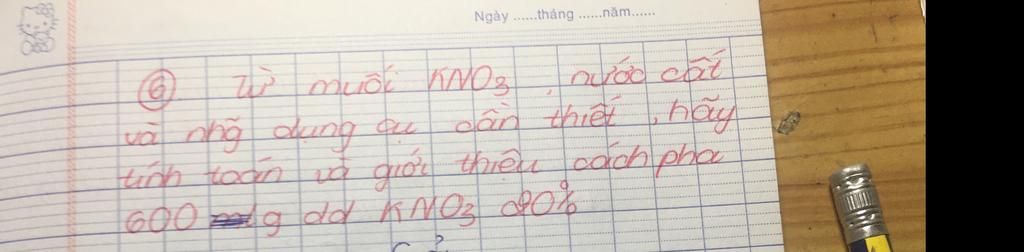 Ngày ......tháng ......năm......
⑥ Từ muối KNO3, nước cất
và nhg dụng cụ cần thiết, hãy
tính toán và giới thiệu cách pha
600 g dd KNO3 20%